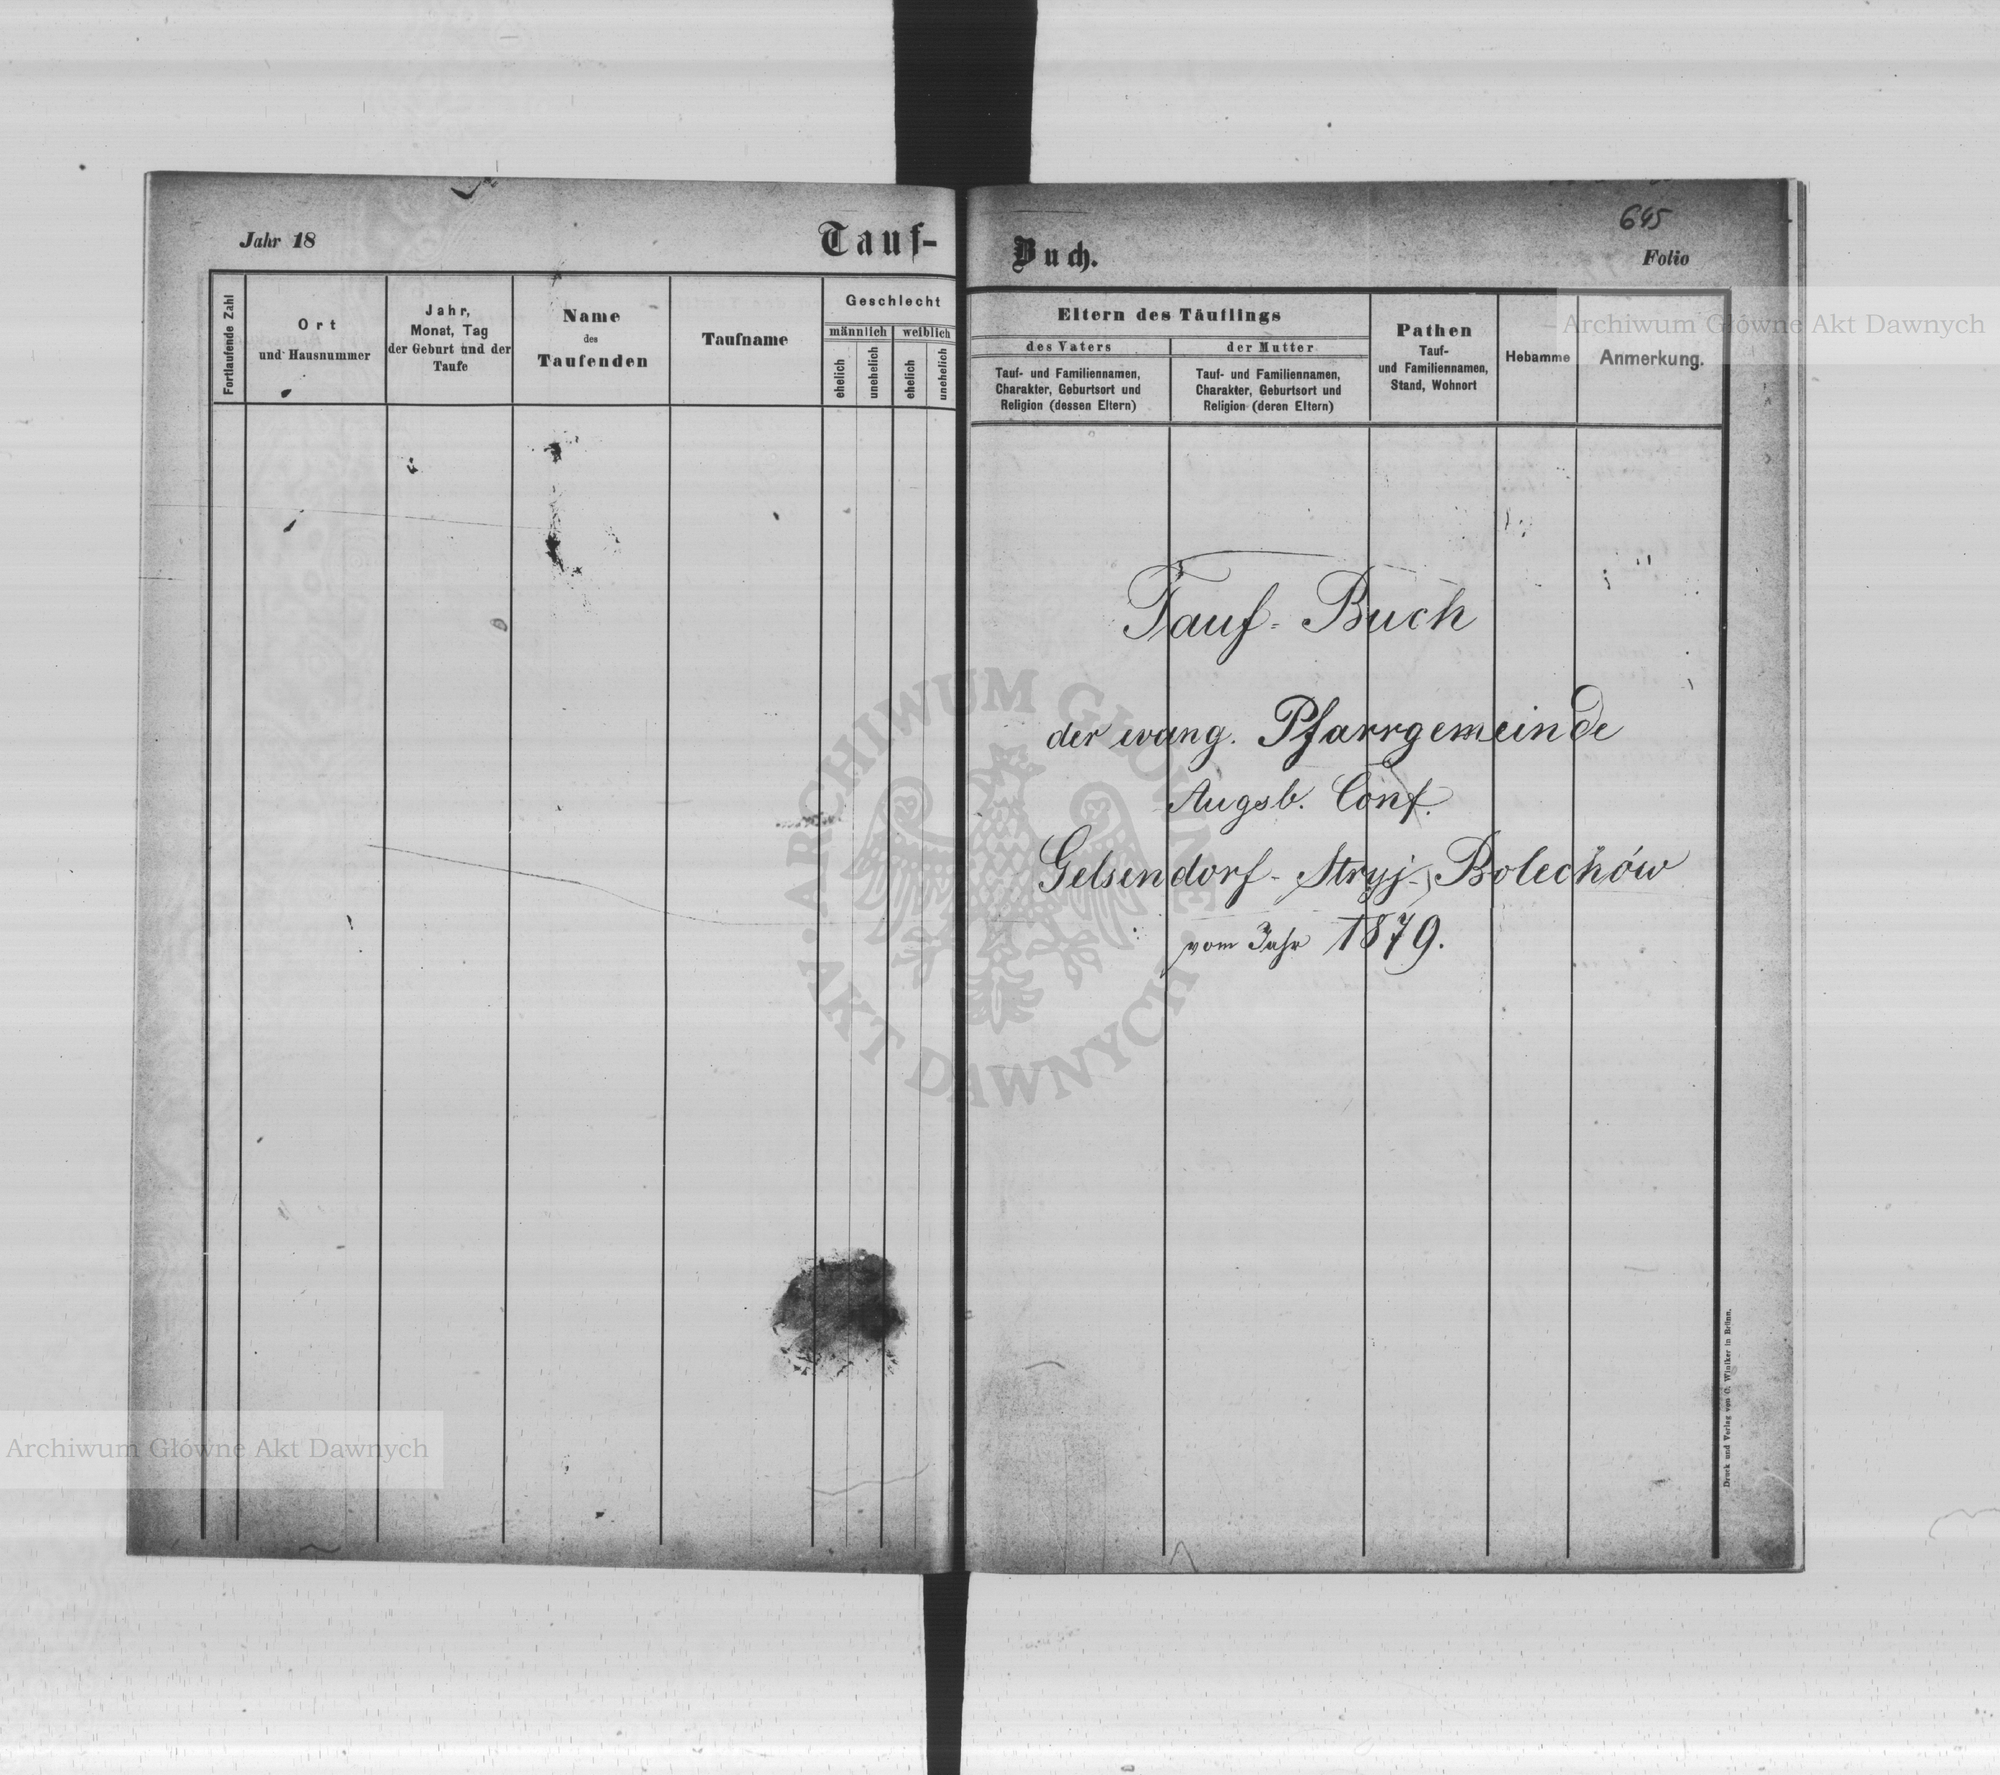 Jahr 18
Tauf-
Fortlaufende Zahl
Ort
und Hausnummer
Jahr,
Monat, Tag
der Geburt und der
Taufe
Name
des
Taufenden
Taufname
Geschlecht
männlich
weiblich
ehelich
unehelich
ehelich
unehelich
645
Buch.
Folio
Eltern des Täuflings
des Vaters
Tauf- und Familiennamen,
Charakter, Geburtsort und
Religion (dessen Eltern)
der Mutter
Tauf- und Familiennamen,
Charakter, Geburtsort und
Religion (deren Eltern)
Pathen
Tauf-
und Familiennamen,
Stand, Wohnort
Hebamme
Anmerkung.
Tauf-Buch
der evang. Pfarrgemeinde
Augsb. Conf.
Gelsendorf-Stryj-Bolechów
vom Jahr 1879.
Druck und Verlag von C. Winiker in Brünn.
Archiwum Główne Akt Dawnych
ARCHIWUM GŁÓWNE
AKT DAWNYCH
Archiwum Główne Akt Dawnych